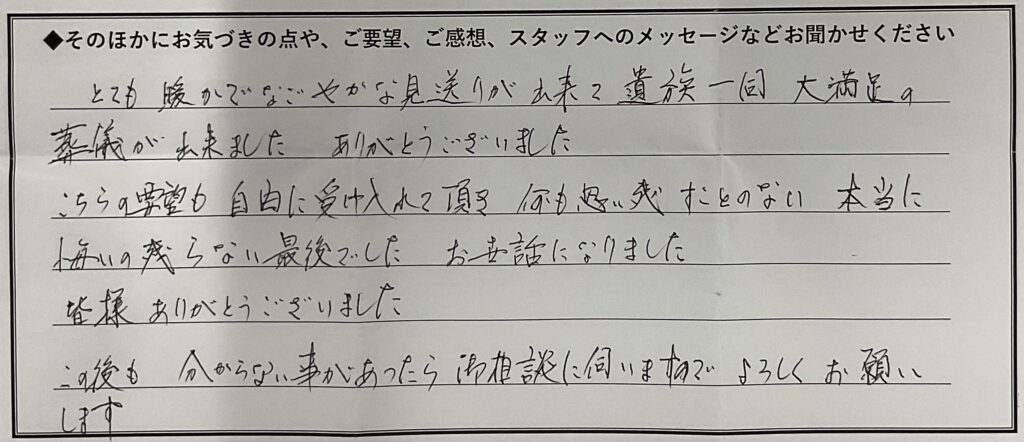 ◆そのほかにお気づきの点や、ご要望、ご感想、スタッフへのメッセージなどお聞かせください
とても 暖かでなごやかな見送りが 出来て 遺族一同 大満足の
葬儀が 出来ました ありがとうございました
こちらの要望も 自由に受け入れて頂き 何も思い残すことのない 本当に
悔いの残らない最後でした お世話になりました
皆様 ありがとうございました
この後も 分からない事があったら 御相談に伺いますので よろしくお願い
します